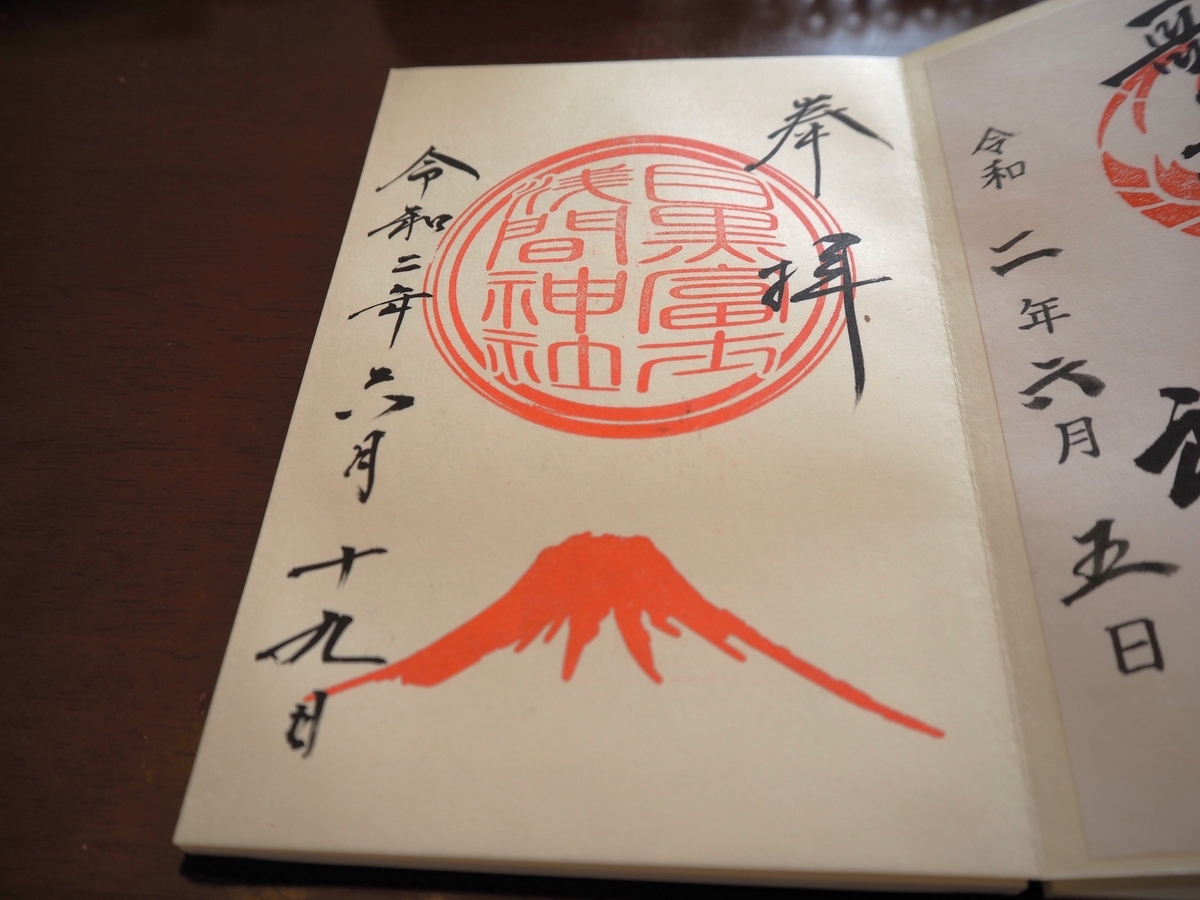 令和二年六月五日
奉拝
目黒富士
浅間神社
令和二年六月十九日